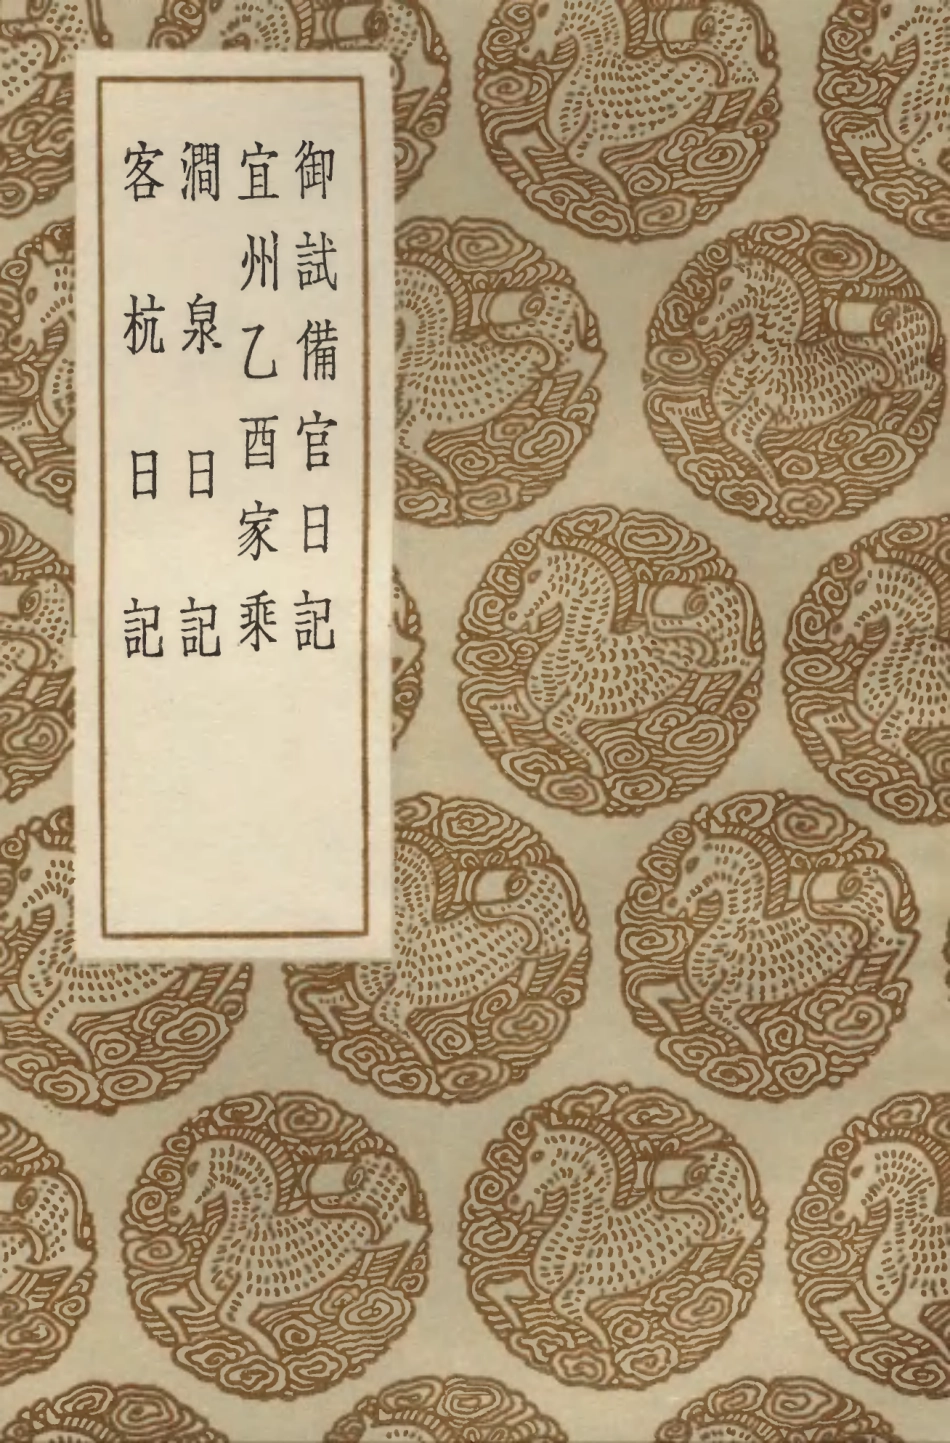 御試備官日記
宜州乙酉家乘
澗泉日記
客杭日記